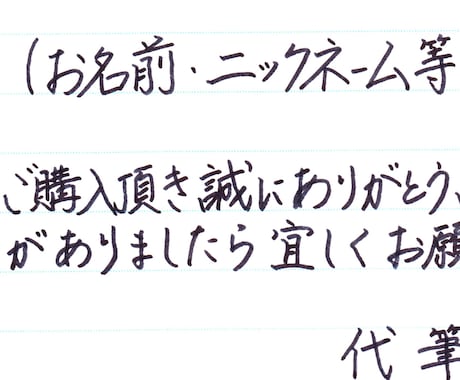 (お名前・ニックネーム等
ご購入頂き誠にありがとう
がありましたら宜しくお願
代筆